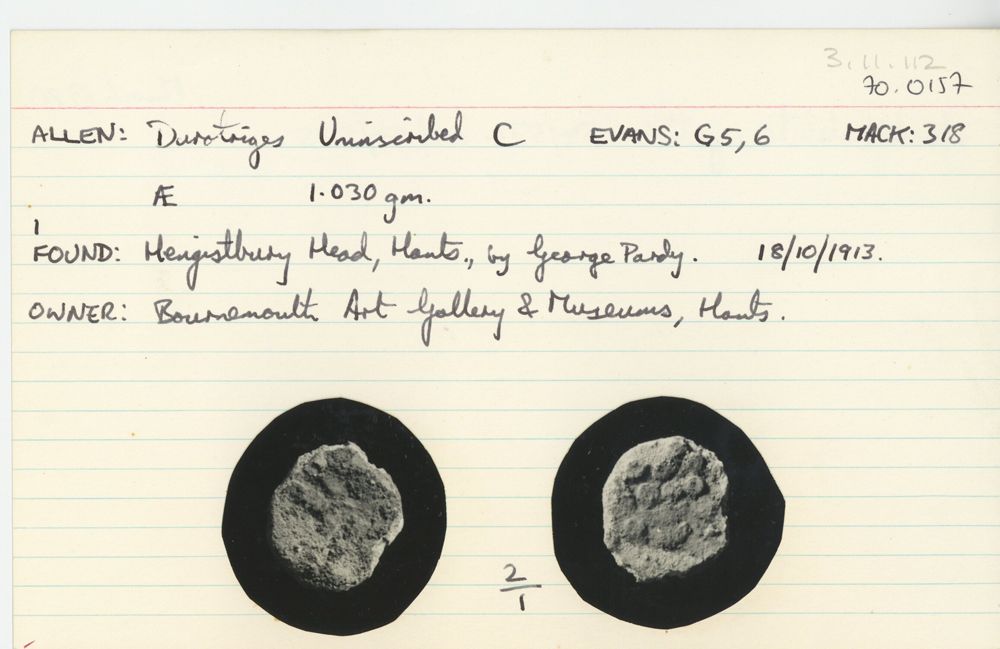 3.11.112
70.0157
ALLEN: Durotriges Uninscribed C EVANS: G5,6 MACK: 318
Æ 1.030 gm.
1
FOUND: Hengistbury Head, Hants., by George Pardy. 18/10/1913.
OWNER: Bournemouth Art Gallery & Museums, Hants.
2
1